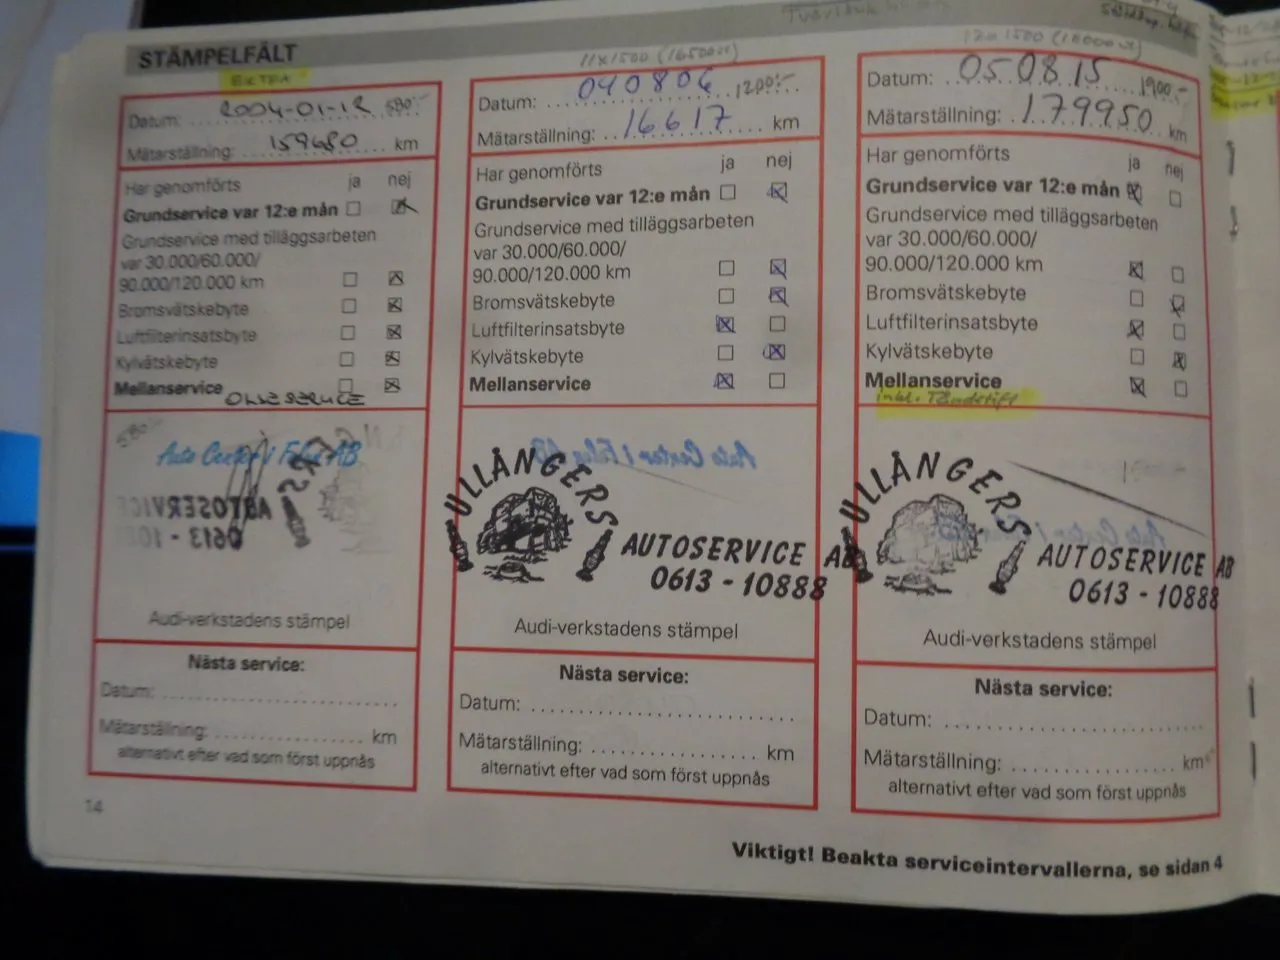 STÄMPELFÄLT
EXTRA
Datum: 2004-01-12 580:-
Mätarställning: 159680 km
Har genomförts ja nej
Grundservice var 12:e mån
Grundservice med tilläggsarbeten
var 30.000/60.000/
90.000/120.000 km
Bromsvätskebyte
Luftfilterinsatsbyte
Kylvätskebyte
Mellanservice
OLJESERVICE
580:-
Auto Center i Felux AB
Audi-verkstadens stämpel
Nästa service:
Datum:
Mätarställning: km
alternativt efter vad som först uppnås
14
11x1500 (16500mil)
Datum: 040806 1200:-
Mätarställning: 16617 km
Har genomförts ja nej
Grundservice var 12:e mån
Grundservice med tilläggsarbeten
var 30.000/60.000/
90.000/120.000 km
Bromsvätskebyte
Luftfilterinsatsbyte
Kylvätskebyte
Mellanservice
ULLÅNGERS
AUTOSERVICE AB
0613 - 10888
Audi-verkstadens stämpel
Nästa service:
Datum:
Mätarställning: km
alternativt efter vad som först uppnås
12x1500 (18000mil)
Datum: 050815 1900:-
Mätarställning: 179950 km
Har genomförts ja nej
Grundservice var 12:e mån
Grundservice med tilläggsarbeten
var 30.000/60.000/
90.000/120.000 km
Bromsvätskebyte
Luftfilterinsatsbyte
Kylvätskebyte
Mellanservice
inkl. Tändstift
ULLÅNGERS
AUTOSERVICE AB
0613 - 10888
Audi-verkstadens stämpel
Nästa service:
Datum:
Mätarställning: km
alternativt efter vad som först uppnås
Viktigt! Beakta serviceintervallerna, se sidan 4